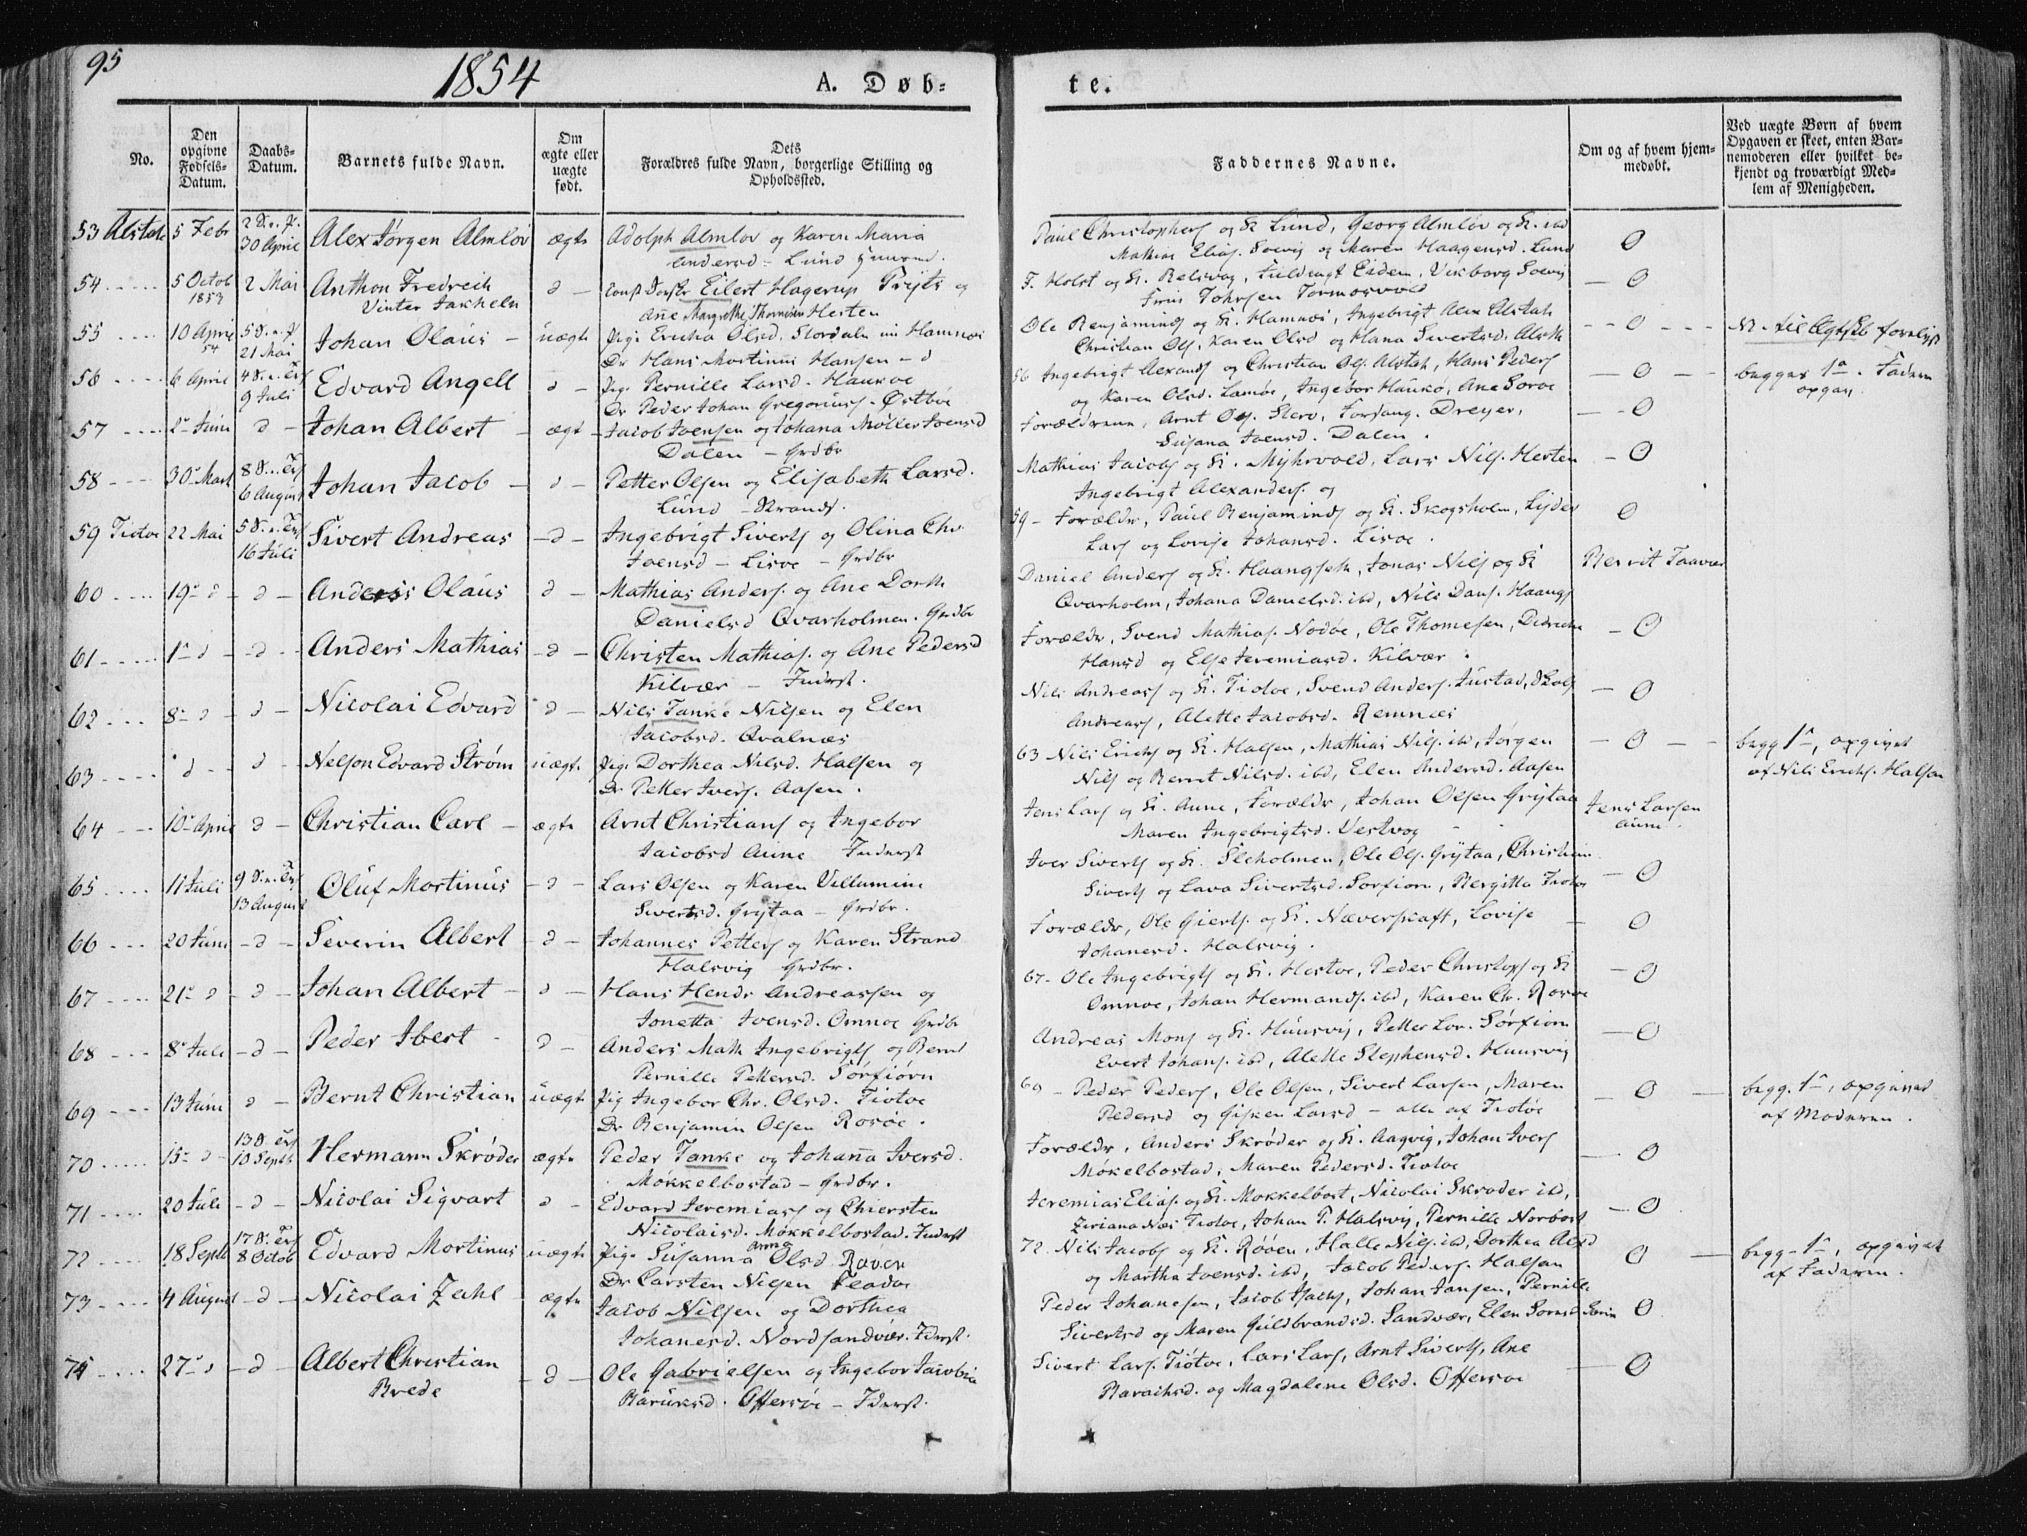 95
1854
A. Døb-
te.
No.
Den opgivne Fødsels-Datum.
Daabs-Datum.
Barnets fulde Navn.
Om ægte eller uægte født.
Dets Forældres fulde Navn, borgerlige Stilling og Opholdssted.
Faddernes Navne.
Om og af hvem hjem-medøbt.
Ved uægte Børn af hvem Opgaven er skeet, enten Bar-nemoderen eller hvilket be-kjendt og troværdigt Med-lem af Menigheden.
53 Alstah 5 Febr 30 April Alex Jørgen Almlov ægte Adolph Almlov og Karen Maria
Andersd - Lund
Paul Christophers og K Lund, Georg Almlov og K. ibd
Mathias Elias. Soevig og Maren Haagensd. Lund 0
54 5 Octob 1853 2 Mai Anthon Fredrech
Vinter Jakheln Eilert Hagerup Prytz og
Ane Margrethe Thomesen Hesten
F. Holst og K. Belsvag, Fuldmægt Eidem, Vikborg Soevig
0
55 10 April 54 21 Mai Johan Olaus - uægte Pige Ericha Olsd. Stordalen Hamnøi
Dr Hans Mortinus Hansen - d
Ole Benjamins og K. Hamnøi, Ingebrigt Alex Alstah
Christian Ols. Karen Olsd og Hana Sivertsd. Alsth 0
56 6 April 9 Juli Edvard Angell d Pig. Pernille Larsd. Haukøe
Dr Peder Johan Gregorius - Østbøe
56 Ingebrigt Alexands og Christian Ols. Alstah, Hans Peders
og Karen Olsd. Lamøe, Ingebor Hauko, Ane Sorøe 0
begges 1a. Faderen
opgav
57 2n Juni d Johan Albert - ægte Jacob Joensen og Johana Møller Joensd
Dalen - Grdbr
Forældrene, Arnt Ols. Sterv, Forsang. Dreyer,
Susana Joensd. Dalen. 0
58 30 Mart 6 August Johan Jacob - d - Petter Olsen og Elisabeth Larsd.
Lund - Strands.
Mathias Jacobs og K. Myhrvold, Lars Nils. Hesten
Ingebrigt Alexanders. og 0
59 Tiotøe 22 Mai 16 Juli Sivert Andreas - d - Ingebrigt Siverts og Olina Chr.
Joensd - Lisøe - Grdbr
59 - Forældr, Paul Benjamins og K. Skogsholm,
Lars og Lovise Johansd. Lisøe. 0
60 19n d - d - Anders Olaus d - Mathias Anders. og Ane Dorth
Danielsd Qvarholmen. Grdbr
Daniel Anders og K. Haangseth, Jonas Niels og K
Qvarholm, Johana Danielsd. ibd, Nils Dans. Haangs
61 1n d - d - Anders Mathias - d - Christen Mathias. og Ane Pedersd
Kilvær - Inderst.
Forældr, Svend Mathias. Nodøe, Ole Thomesen,
Hansd og Else Jeremiasd. Kilvær. 0
62 8n d - d - Nicolai Edvard d - Nils Tanke Nilsen og Elen
Jacobsd. Qvalnæs
Nils Andreas og K. Tiotøe, Svend Anders. Justad,
Andreas, Alette Jacobsd. Remnæs 0
63 d - d Nelson Edvard Strøm uægte Pig. Dorthea Nilsd. Halsen og
Dr Petter Ivers. Aasen.
63 Nils Erichs og K. Halsen, Mathias Nils. ibd, Jørgen
Nils og Bernt Nilsd. ibd, Elen Andersd. Aasen 0
begg 1n, opgivet
af Nils Erichs. Halsen
64 10n April d Christian Carl - ægte Arnt Christians og Ingebor
Jacobsd Aune Inderst
Jens Lars og K. Aune, Forældr, Johan Olsen Grytaa
Maren Ingebrigtsd. Vestvog
Jens Larsen
Aune.
65 11 Juli 13 August Oluf Mortinus - d - Lars Olsen og Karen Villumine
Sivertsd. Grytaa - Grdbr.
Iver Siverts og K. Steholmen, Ole Ols. Grytaa, Christian
Siverts og Lava Sivertsd. Sorfiorn, Bergitta Tiotøe 0
66 20 Juni - d - Severin Albert - d - Johannes Petters og Karen Strand
Halsvig Grdbr.
Forældr, Ole Gierts. og K. Næverskaft, Lovise
Johanesd. Halsvig. 0
67 21n d - d - Johan Albert - d - Hans Hendr Andreassen og
Jonetta Joensd. Omnøe Grdbr
67 - Ole Ingebrigts og K. Hestøe, Peder Christops og K
Omnøe, Johan Hermands. ibd, Karen Chr. Rosøe 0
68 8n Juli - d - Peder Ibert - d - Anders Math Ingebrigts og Bernt
Pernille Pettersd. Sørfiorn
Andreas Mons og K. Huusvig, Petter Lor. Sørfiorn
Evert Johans. ibd, Alette Stephensd. Huusvig 0
69 13 Juni d - Bernt Christian uægte Pig Ingebor Chr. Olsd. Tiotøe
Dr Benjamin Olsen Rosøe.
69 - Peder Peders, Ole Olsen, Sivert Larsen, Maren
Pedersd og Gisken Larsd - alle af Tiotøe 0
begg. 1n, opgivet
af Moderen.
70 15n d 10 Septb Hermann Skrøder ægte Peder Tanke og Johanna Iversd.
Møkkelbostad - Grdbr.
Forældr, Anders Skrøder og K. Aagvig, Johan Ivers
Møkelbostad, Maren Pedersd. Tiotøe 0
71 20 Juli - d - Nicolai Sigvart d - Edvard Jeremias og Chiersten
Nicolaisd. Møkkelbostad. Inderst
Jeremias Elias. og K. Mokkelbost, Nicolai Skrøder ibd,
Ziriana Næs Tiotøe, Johan P. Halsvig, Pernille Norbost 0
72 18 Septb 8 Octob Edvard Mortinus uægte Pig. Susanna Anna Olsd Røven
Dr Carsten Nilsen
72. Nils Jacobs og K. Røøen, Halle Nils. ibd, Dorthea Alsd
og Martha Joensd. ibd, Jacob Peders. Halsen 0
begg - 1n, opgivet
af Faderen.
73 4 August - d - Nicolai Zahl - ægte Jacob Nilsen og Dorthea
Johanesd. Nordsandvær. Inderst.
Peder Johanesen, Jacob Isachs, Johan Jansen, Pernille
Sivertsd og Maren Guldbrandsd. Sandvær, Elen 0
74 27n d - d Albert Christian
Brede - d - Ole Gabrielsen og Ingebor Jacobia
Baruksd. Offersøe - Inderst.
Sivert Lars. Tiotøe, Lars Lars, Arnt Siverts, Ane
Barachsd. og Magdalene Olsd. Offersøe 0